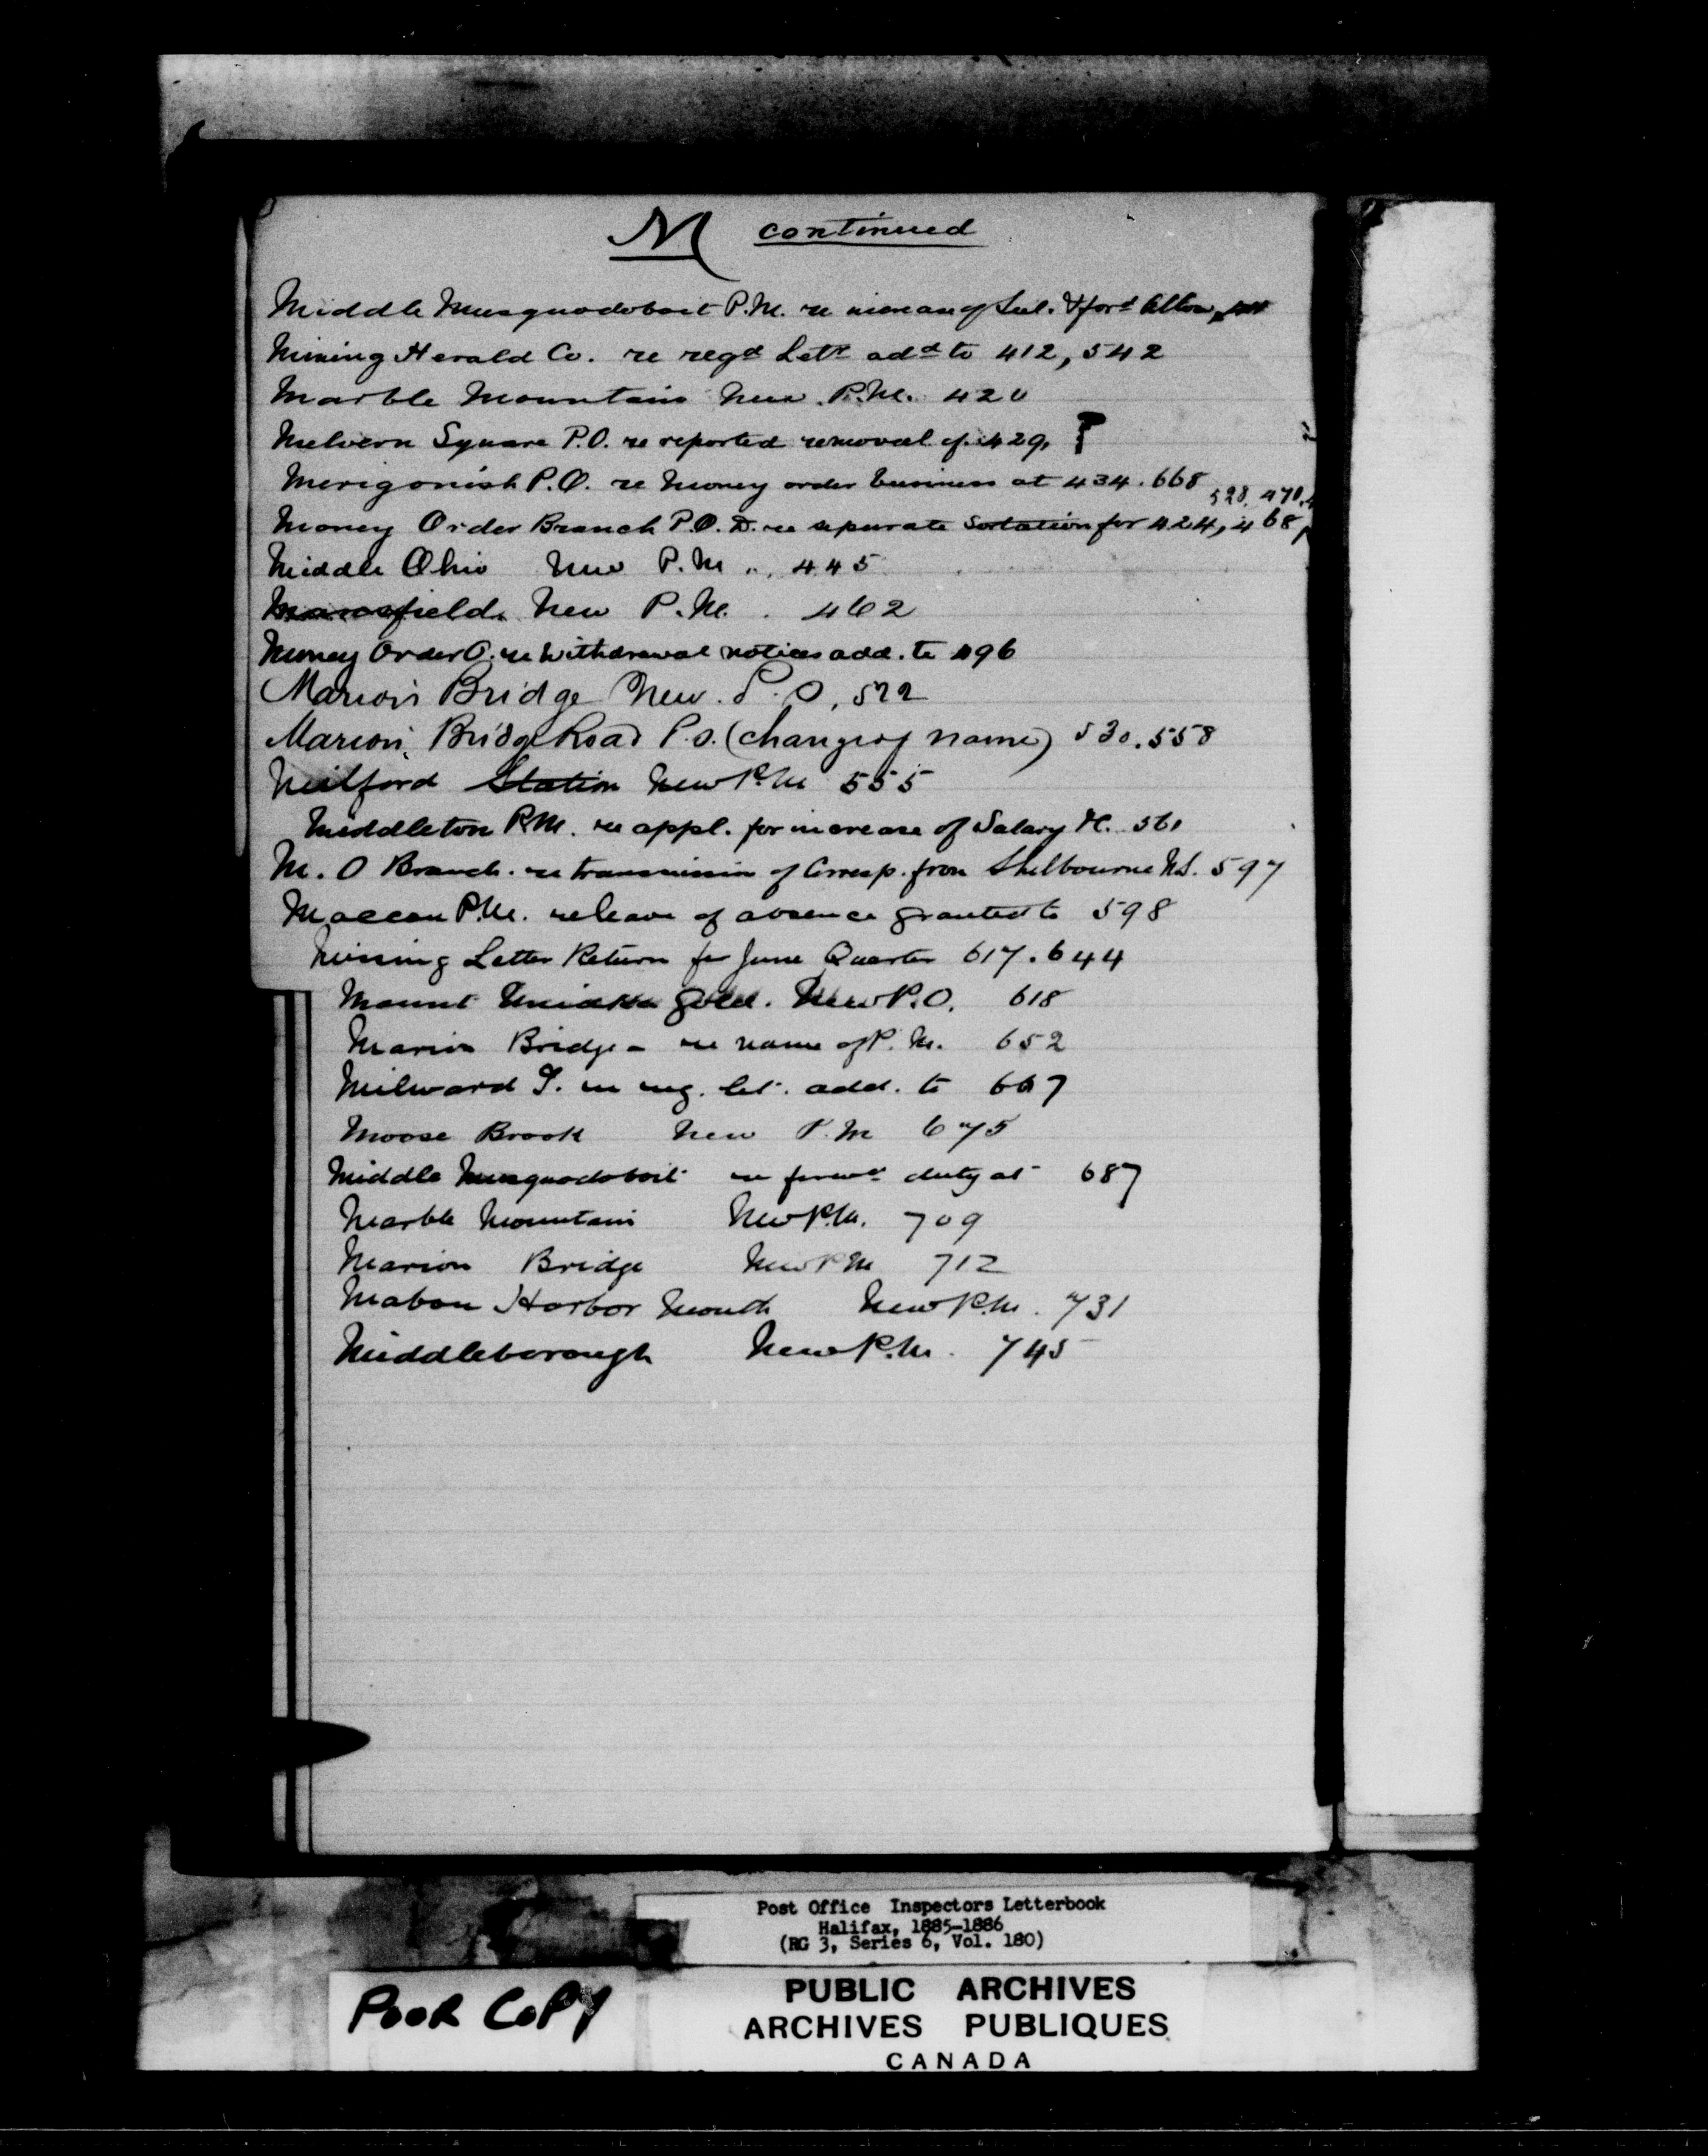 M continued
Middle Musquodoboit P.M. re increase of Sal. & ford Allow.
Mining Herald Co. re regd Letr add to 412, 542
Marble Mountain New P.M. 420
Melvern Square P.O. re reported removal of 429,
Merigonish P.O. re Money order business at 434. 668
528, 470,
Money Order Branch P.O.D. re separate sortation for 424, 468,
Middle Ohio New P.M. 445
Mansfield New P.M. 462
Money Order O. re Withdrawal notices add. to 496
Marion Bridge New P.O, 522
Marion Bridge Road P.O. (change of name) 530.558
Milford Station New P.M 555
Middleton P.M. re appl. for increase of Salary &c. 561
M.O Branch. re transmission of Corresp. from Shelbourne N.S. 597
Maccan P.M. re leave of absence granted to 598
Missing Letter Return for June Quarter 617.644
Mount Uniacke Gold. New P.O. 618
Marion Bridge - re name of P.M. 652
Milward T. re reg. let. add. to 667
Moose Brook New P.M 675
Middle Musquodoboit re forwd duty at 687
Marble Mountain New P.M. 709
Marion Bridge New P.M 712
Mabou Harbor Mouth New P.M. 731
Middleborough New P.M. 745
Post Office Inspectors Letterbook
Halifax, 1885-1886
(RG 3, Series 6, Vol. 180)
POOR COPY
PUBLIC ARCHIVES
ARCHIVES PUBLIQUES
CANADA